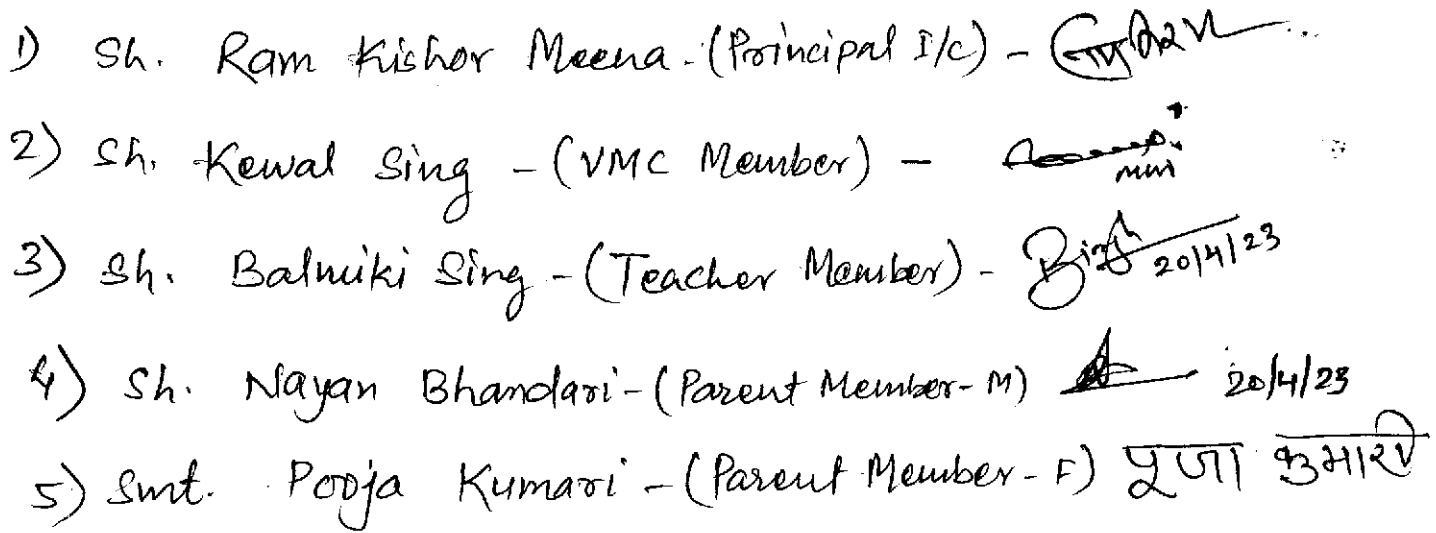 1) Sh. Ram Kishor Meena - (Principal I/c) -
2) Sh. Kewal Sing - (VMC Member) -
3) Sh. Balmiki Sing - (Teacher Member) - 20/4/23
4) Sh. Nayan Bhandari - (Parent Member - M) 20/4/23
5) Smt. Pooja Kumari - (Parent Member - F) पूजा कुमारी